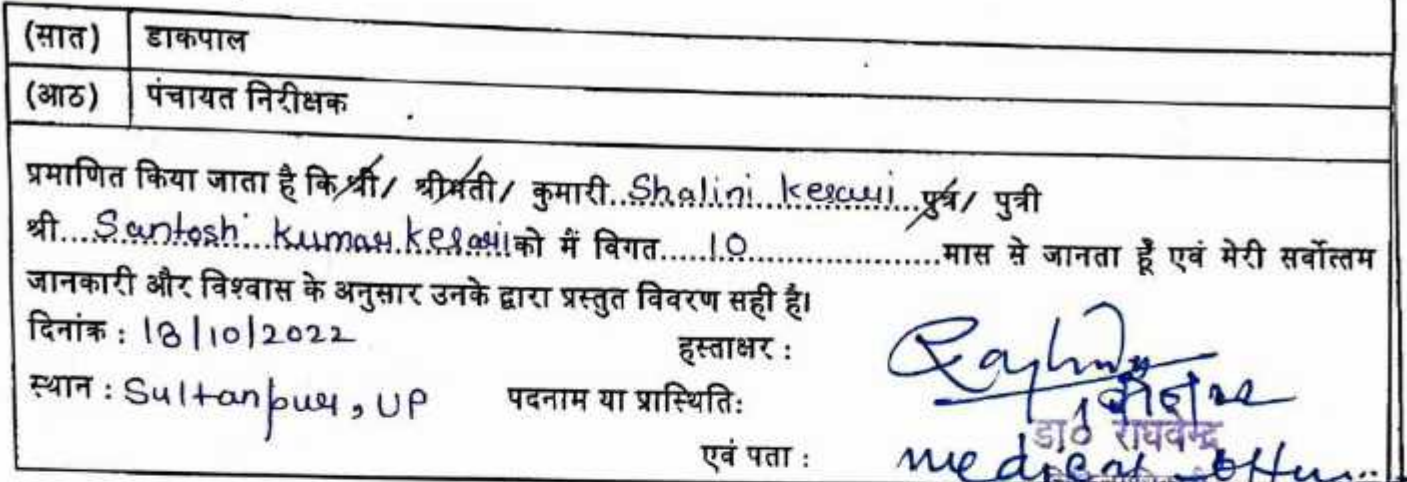 (सात) डाकपाल
(आठ) पंचायत निरीक्षक
प्रमाणित किया जाता है कि श्री/ श्रीमती/ कुमारी..Shalini Kesari..पुत्र/ पुत्री
श्री....Santosh Kumar Kesariको मैं विगत......10......................मास से जानता हूँ एवं मेरी सर्वोत्तम
जानकारी और विश्वास के अनुसार उनके द्वारा प्रस्तुत विवरण सही है।
दिनांक : 18|10|2022 हस्ताक्षर :
स्थान : Sultanpur, UP पदनाम या प्रास्थितिः
डा० राघवेन्द्र
एवं पता : medical